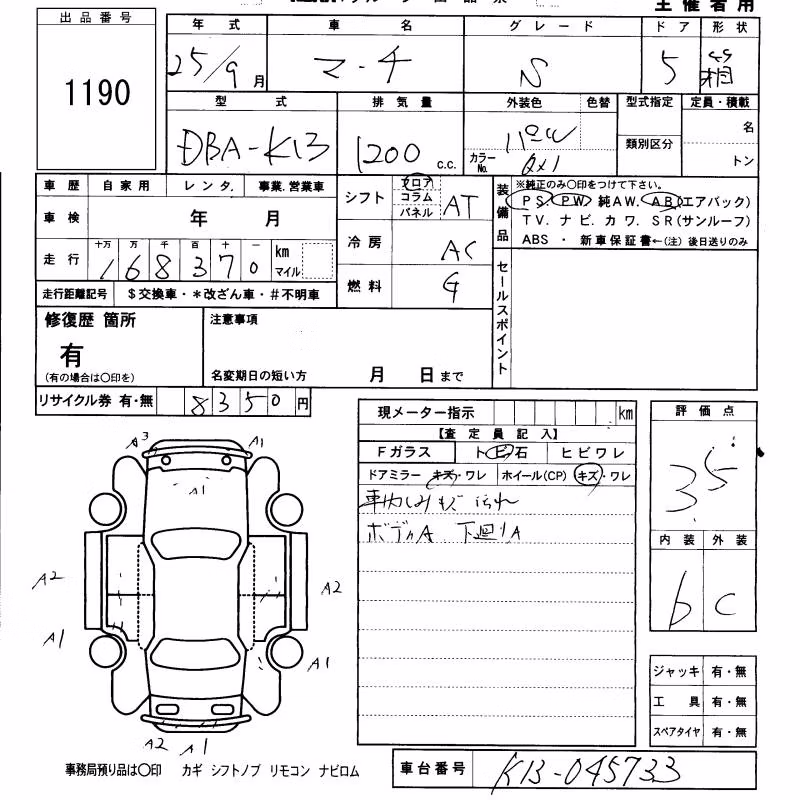 主催者用
出品番号
1190
年式 車名 グレード ドア 形状
25/9月 マーチ S 5 箱
型式 排気量 外装色 色替 型式指定 定員・積載
DBA-K13 1200 c.c. パープル カラーNo. QX1 類別区分 名
トン
車歴 自家用 レンタ. 事業.営業車
車検 年 月
走行 十万 万 千 百 十 一 km マイル
168370
走行距離記号 $交換車・*改ざん車・#不明車
シフト フロア コラム パネル AT
冷房 AC
燃料 G
装備品 ※純正のみ〇印をつけて下さい。
PS. PW 純AW. AB(エアバック)
TV. ナビ. カワ. SR(サンルーフ)
ABS ・ 新車保証書←(注) 後日送りのみ
セールスポイント
修復歴 箇所
有
(有の場合は〇印を)
注意事項
名変期日の短い方 月 日まで
リサイクル券 有・無 8350円
現メーター指示 km
【査定員記入】
Fガラス トビ石 ヒビワレ
ドアミラー キズ・ワレ ホイール(CP) キズ・ワレ
車内しみキズ 汚れ
ボディA 下廻りA
評価点
3.5
内装 外装
b C
A3 A1
A1
A2 A2
A1 A1
A2 A1
ジャッキ 有・無
工具 有・無
スペアタイヤ 有・無
事務局預り品は〇印 カギ シフトノブ リモコン ナビロム
車台番号 K13-045733